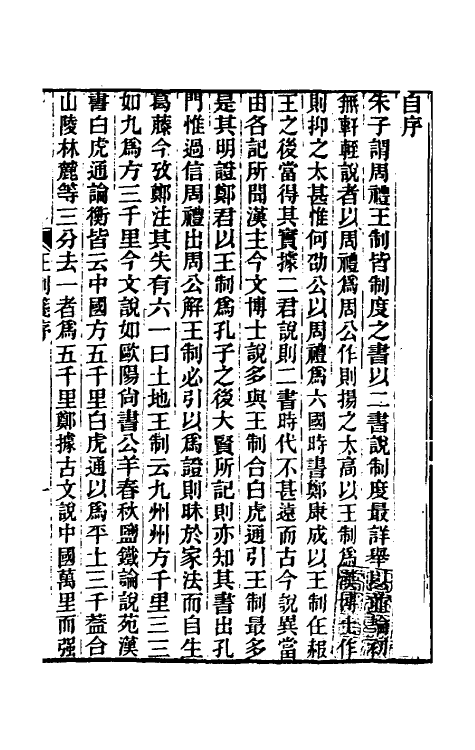 自序
朱子謂周禮王制皆制度之書以二書說制度最詳舉以並論初
無軒輊說者以周禮爲周公作則揚之太高以王制爲漢博士作
則抑之太甚惟何劭公以周禮爲六國時書鄭康成以王制在赧
王之後當得其實據二君說則二書時代不甚遠而古今說異當
由各記所聞漢主今文博士說多與王制合白虎通引王制最多
是其明證鄭君以王制爲孔子之後大賢所記則亦知其書出孔
門惟過信周禮出周公解王制必引以爲證則昧於家法而自生
葛藤今攷鄭注其失有六一曰土地王制云九州州方千里三三
如九爲方三千里今文說如歐陽尙書公羊春秋鹽鐵論說苑漢
書白虎通論衡皆云中國方五千里白虎通以爲平土三千葢合
山陵林麓等三分去一者爲五千里鄭據古文說中國萬里而强
王制箋序
一